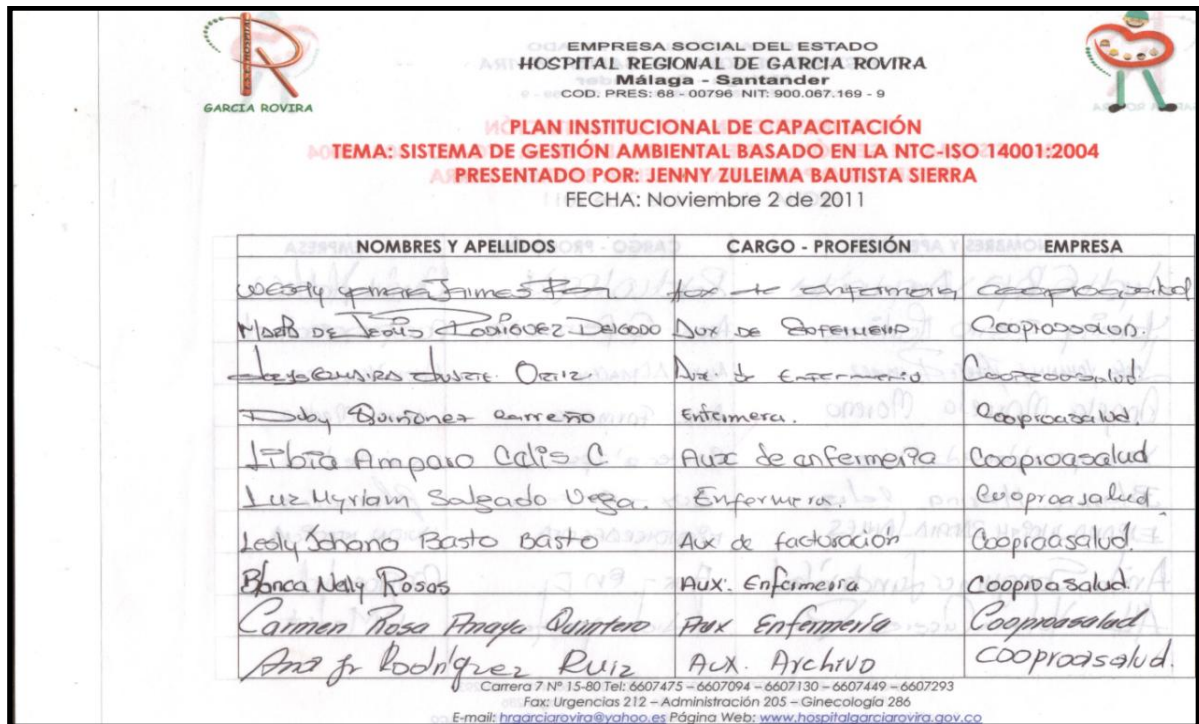 E.S.E. HOSPITAL
GARCIA ROVIRA
EMPRESA SOCIAL DEL ESTADO
HOSPITAL REGIONAL DE GARCIA ROVIRA
Málaga - Santander
COD. PRES: 68 - 00796 NIT: 900.067.169 - 9
PLAN INSTITUCIONAL DE CAPACITACIÓN
TEMA: SISTEMA DE GESTIÓN AMBIENTAL BASADO EN LA NTC-ISO 14001:2004
PRESENTADO POR: JENNY ZULEIMA BAUTISTA SIERRA
FECHA: Noviembre 2 de 2011
NOMBRES Y APELLIDOS CARGO - PROFESIÓN EMPRESA
Jaimes Aux de enfermeria Cooproasalud
DE JESÚS RODRÍGUEZ DELGADO Aux DE ENFERMERIA
ORTIZ Aux. de Enfermeria Cooproasalud
Quiñonez Carreño Enfermera. Cooproasalud.
Libia Amparo Calis C Aux de enfermería Cooproasalud
Luz Myriam Salgado Vega. Enfermera. Cooproasalud.
Lesly Johana Basto Basto Aux de facturación Cooproasalud.
Blanca Nelly Rosas Aux. Enfermeria Cooproasalud.
Carmen Rosa Anaya Quintero Aux Enfermería Cooproasalud
Ana Rodríguez Ruiz Aux. Archivo Cooproasalud.
Carrera 7 Nº 15-80 Tel: 6607475 – 6607094 – 6607130 – 6607449 – 6607293
Fax: Urgencias 212 – Administración 205 – Ginecología 286
E-mail: hrgarciarovira@yahoo.es Página Web: www.hospitalgarciarovira.gov.co